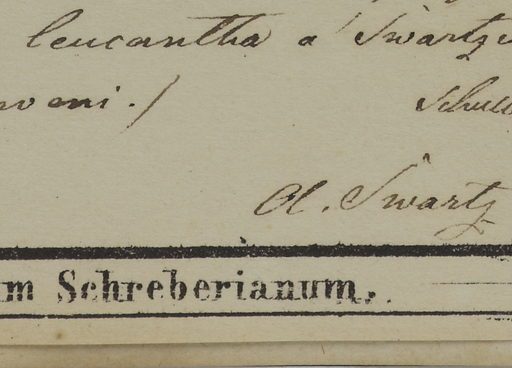 leucantha a Swartz
eni./
Ol. Swartz
m Schreberianum.